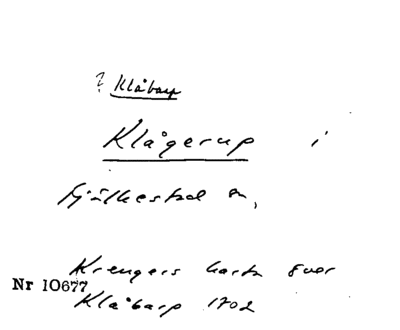 ? Klåbarp
Klågerup i
Fjälkestad sn,
Krengers karta över
Nr 10677
Klåbarp 1702